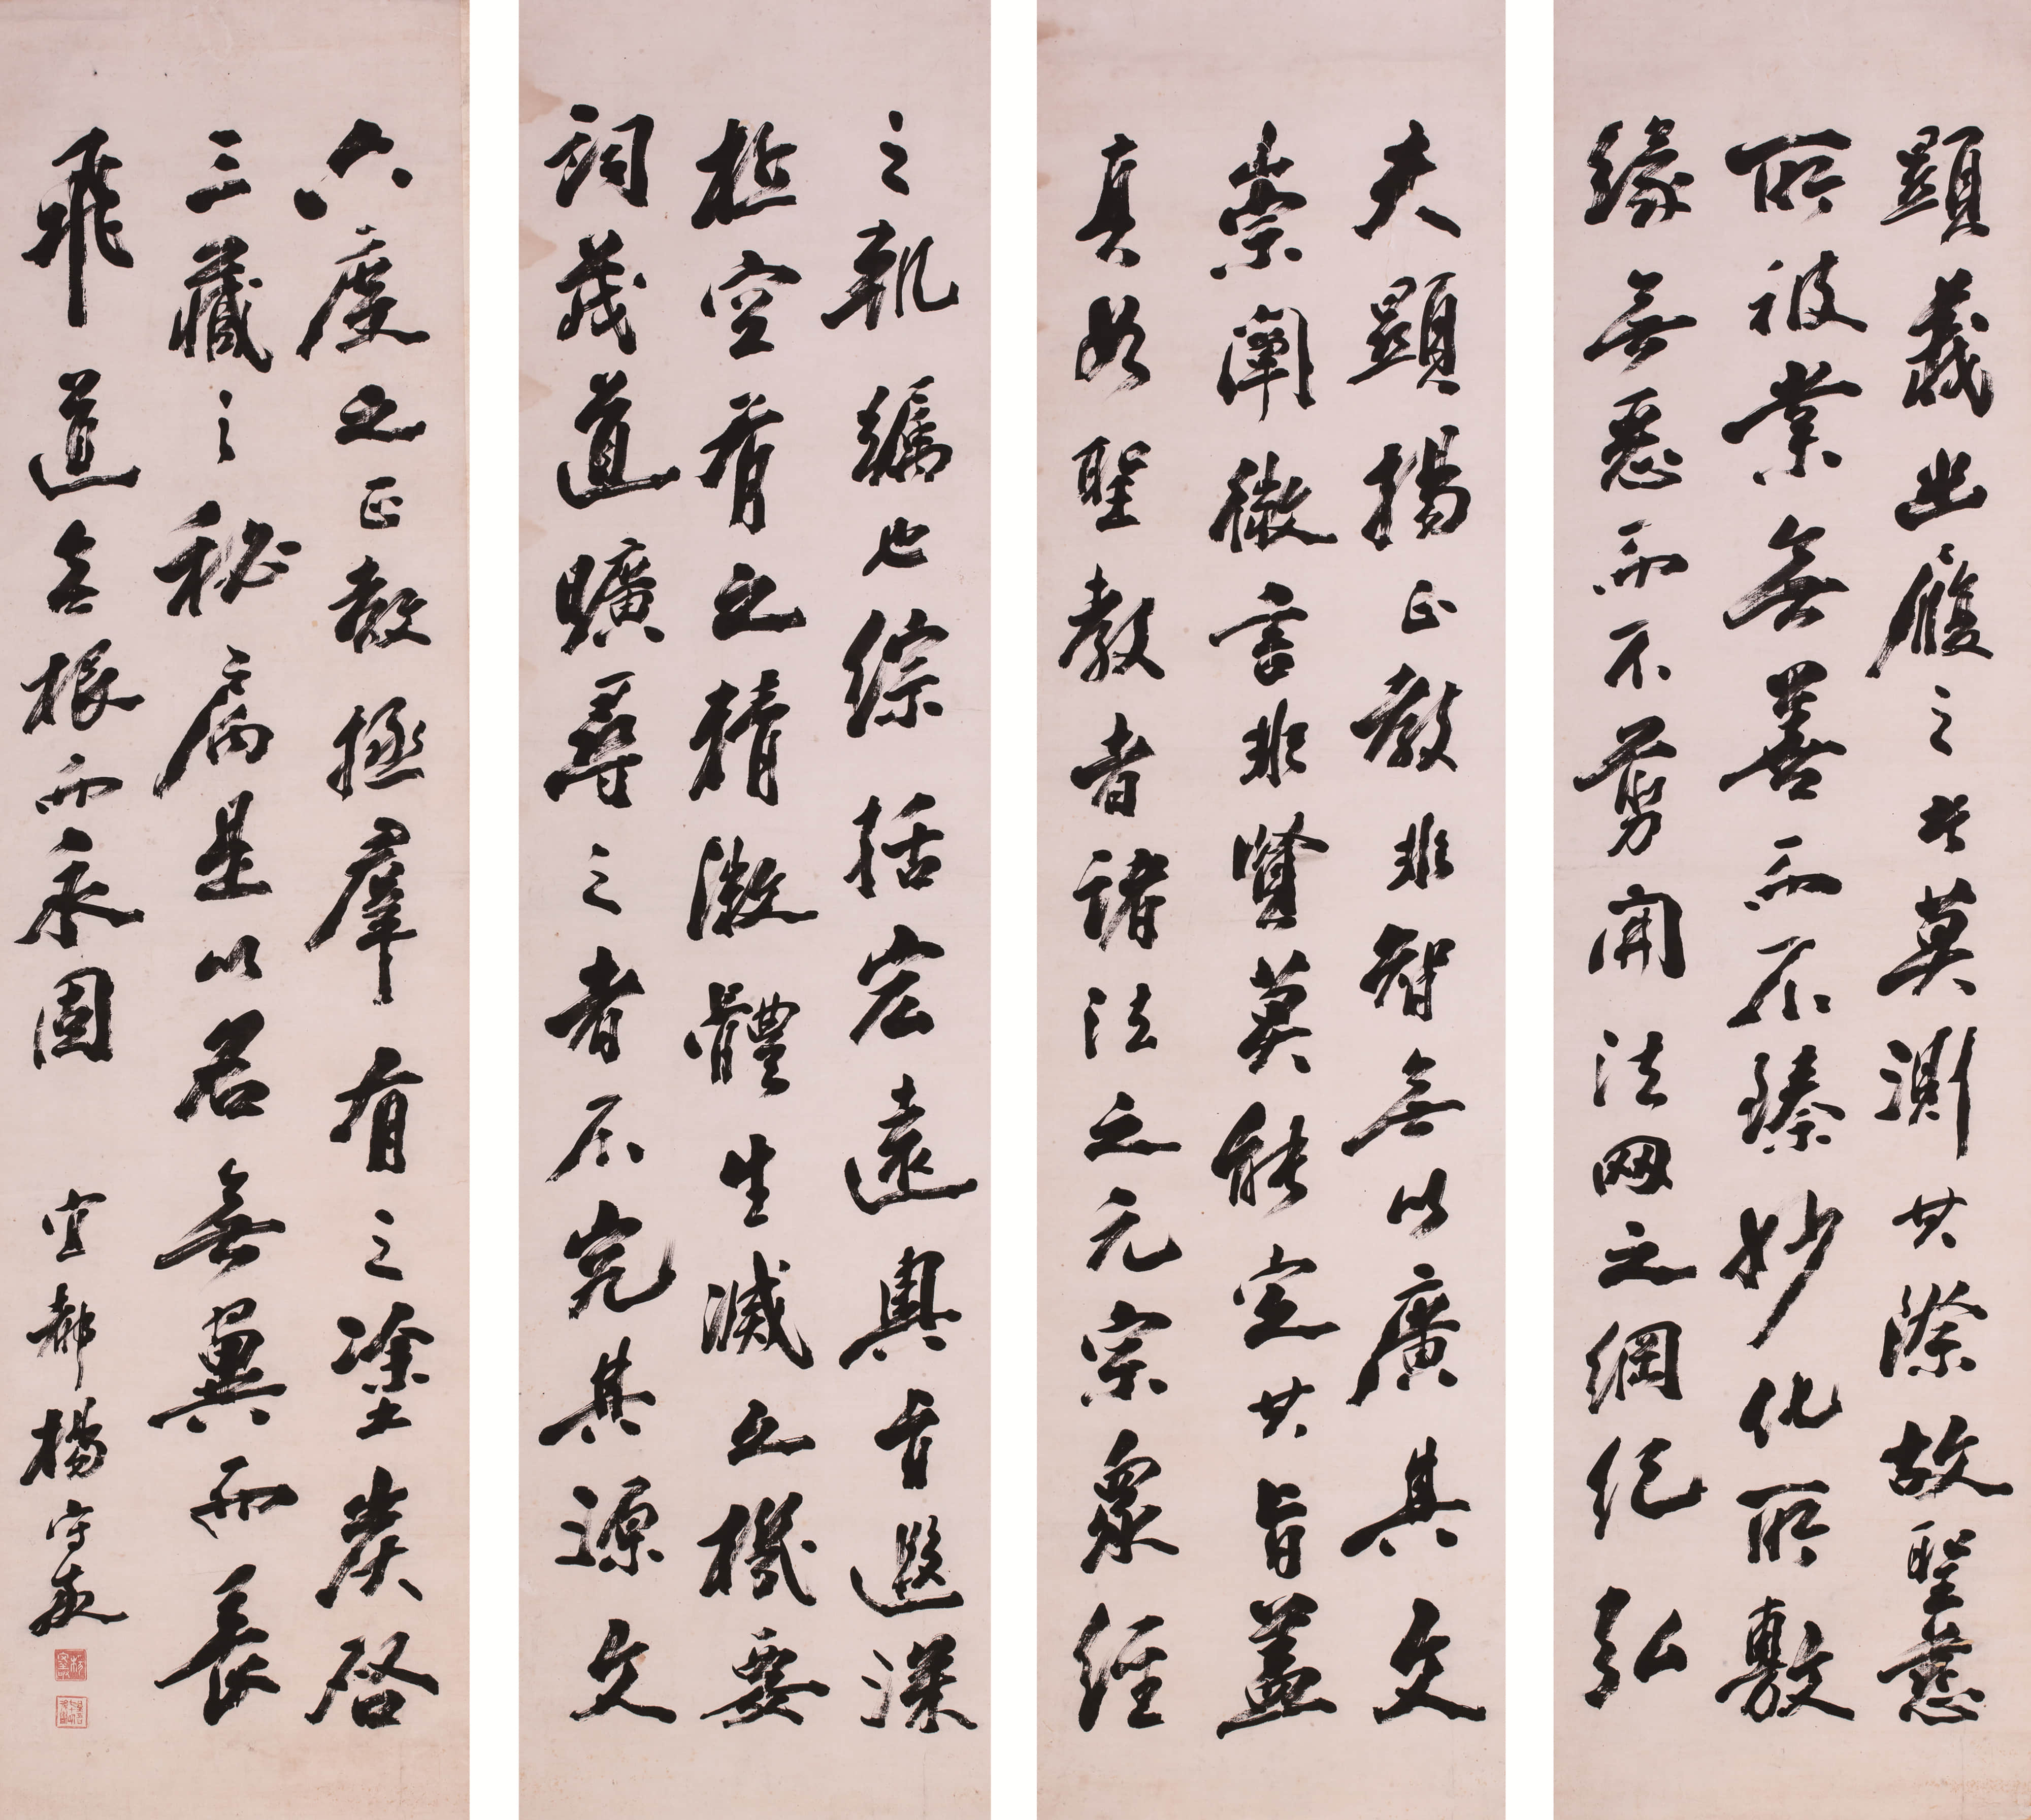 顯義幽履之者莫測其際故聖慈
所被業無善而不臻妙化所敷
緣無惡而不翦開法网之綱紀弘
夫顯揚正教非智無以廣其文
崇闡微言非賢莫能定其旨蓋
真如聖教者諸法之元宗眾經
之軌躅也綜括宏遠奧旨遐深
極空有之精微體生滅之機要
詞茂道曠尋之者不究其源文
六度之正教拯羣有之塗炭啓
三藏之秘扃是以名無翼而長
飛道無根而永固
宜都楊守敬